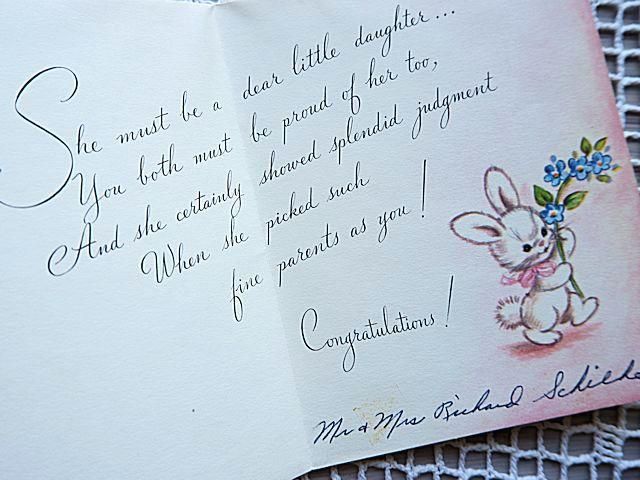 She must be a dear little daughter...
You both must be proud of her too,
And she certainly showed splendid judgment
When she picked such
fine parents as you!
Congratulations!
Mr & Mrs Richard